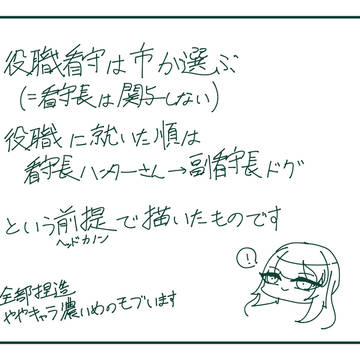 役職看守は市が選ぶ
(=看守長は関与しない)
役職に就いた順は
看守長ハンターさん→副看守長ドグ
という前提で描いたものです
ヘッドカノン
!
全部捏造
ややキャラ濃いめのモブいます